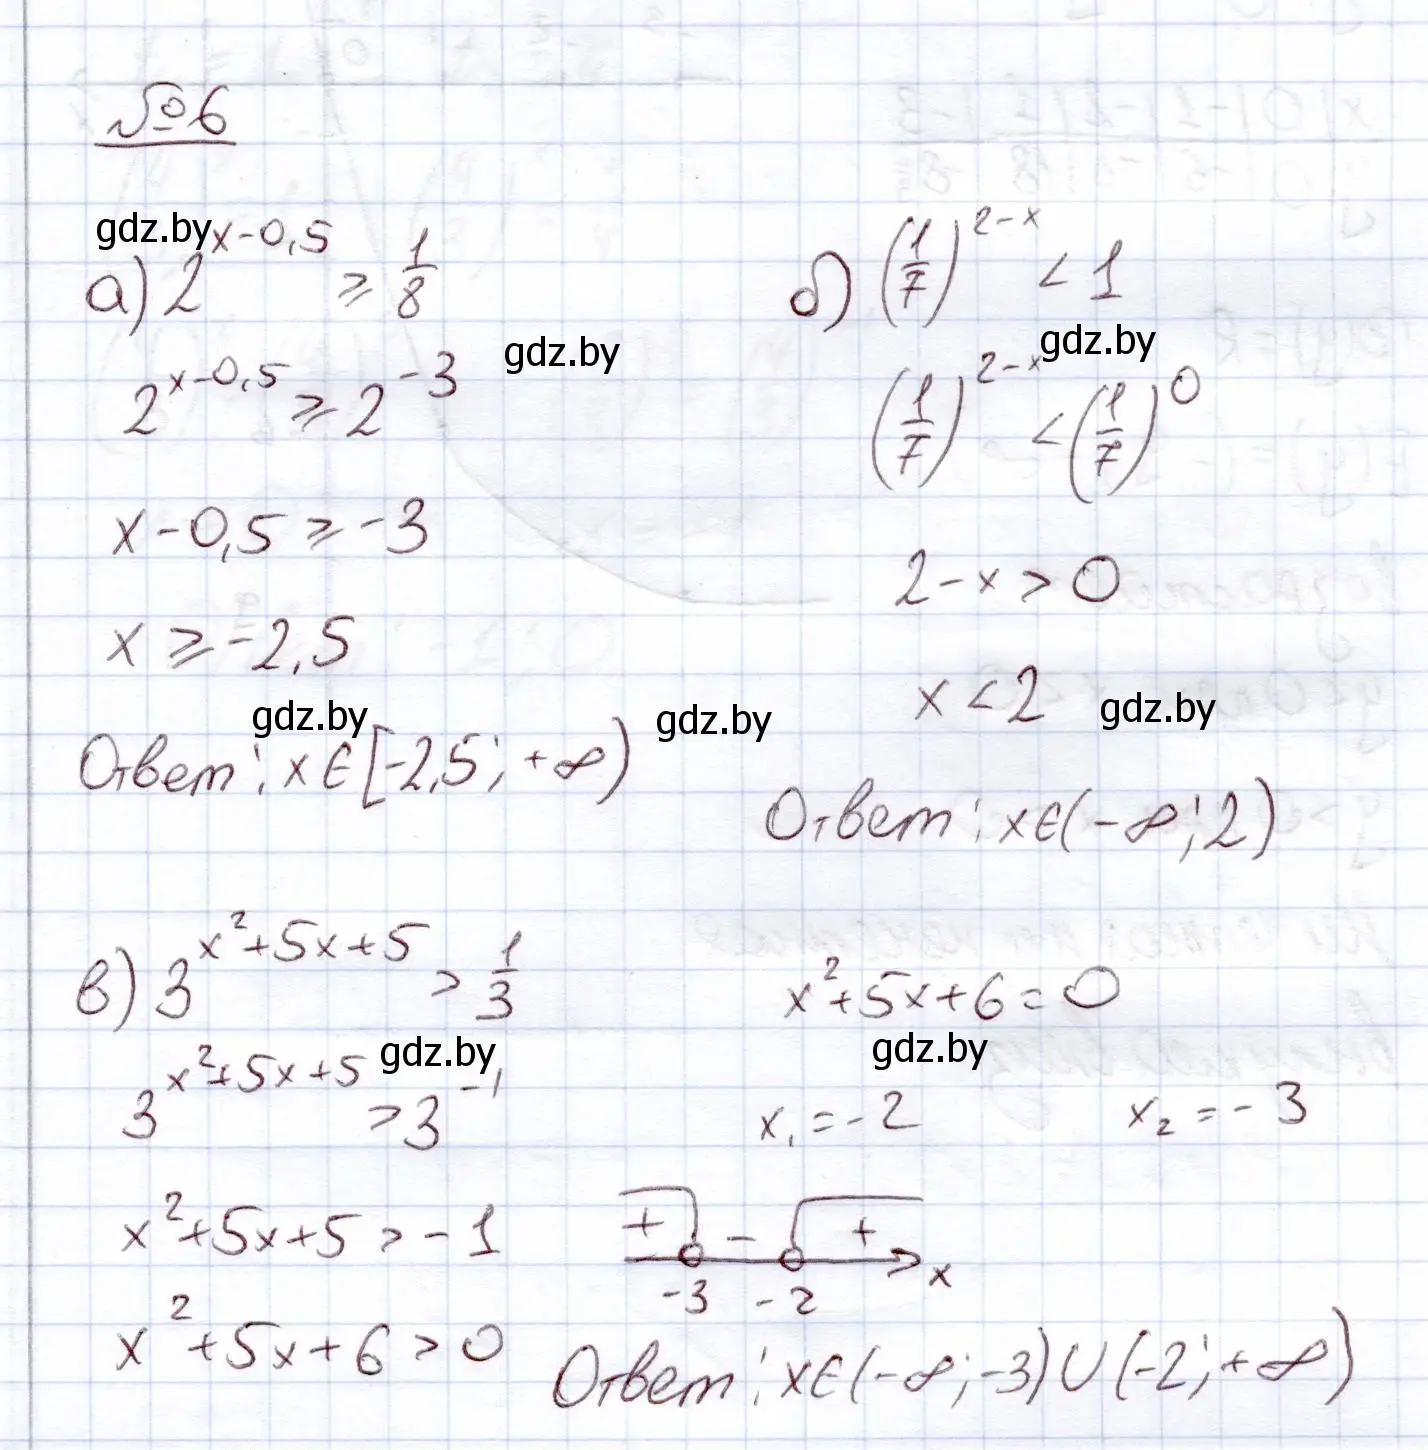 №6
gdz.by
а) 2^(x-0,5) ≥ 1/8
gdz.by
2^(x-0,5) ≥ 2^(-3)
x-0,5 ≥ -3
x ≥ -2,5
gdz.by
Ответ: x∈[-2,5; +∞)
gdz.by
б) (1/7)^(2-x) < 1
gdz.by
(1/7)^(2-x) < (1/7)^0
2-x > 0
x < 2
gdz.by
Ответ: x∈(-∞; 2)
в) 3^(x²+5x+5) > 1/3
gdz.by
3^(x²+5x+5) > 3^(-1)
x²+5x+5 > -1
x²+5x+6 > 0
x²+5x+6=0
gdz.by
x₁ = -2 x₂ = -3
+ - +
-3 -2 x
Ответ: x∈(-∞; -3)∪(-2; +∞)